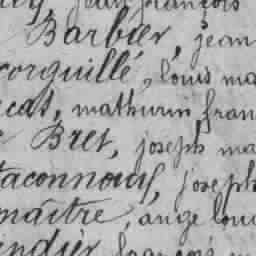 jean françois
Barbier, jean
corguillé, louis ma
cas, mathurin fran
Bret, joseph ma
taconnoux, joseph
maître, ange loui
ndier françois